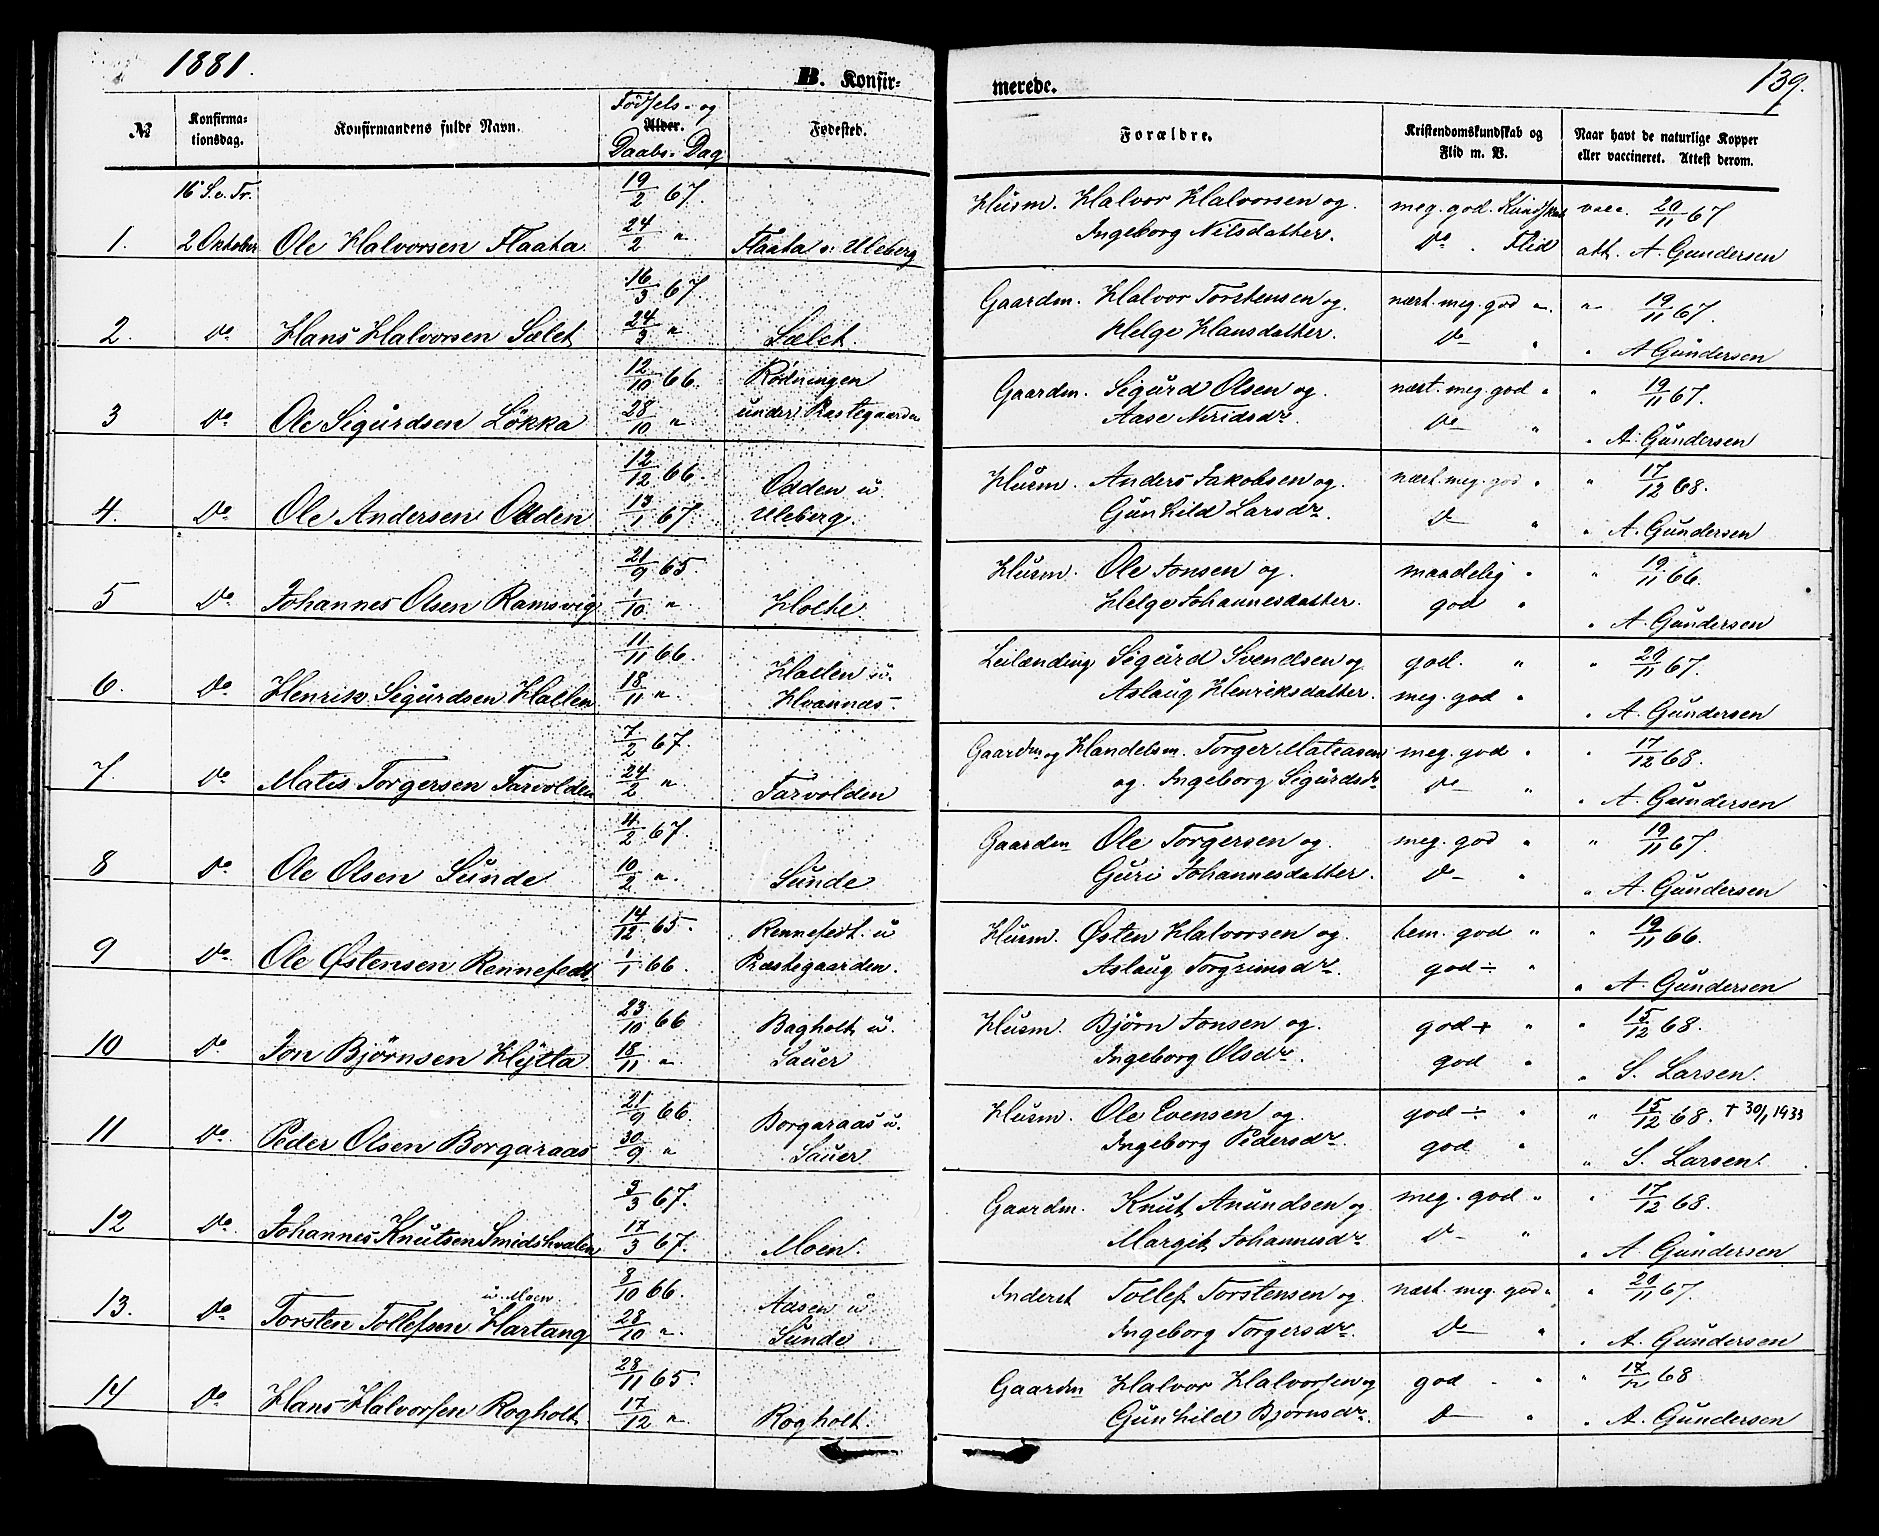 1881.
B. Konfir-
merede.
139.
№ Konfirma-tionsdag. Konfirmandens fulde Navn. Fødsels- og Alder. Daabs-Dag Fødested. Forældre. Kristendomskundskab og Flid m. V. Naar havt de naturlige Kopper eller vaccineret. Attest derom.
16 S. e. Tr. 19/2 67. Husm. Halvor Halvorsen og meg. god. Kundskab vacc. 20/11 67
1. 2 Oktober Ole Halvorsen Flaata 24/2 " Flaata u. Uleberg Ingeborg Nilsdatter. Do . Flid att. A. Gundersen
16/3 67. Gaardm. Halvor Torstensen og nært. meg. god " " 19/11 67.
2. Do Hans Halvorsen Sælet 24/3 " Sælet. Helge Hansdatter. Do " " A Gundersen
12/10 66. Rødningen Gaardm. Sigurd Olsen og nært. meg. god " " 19/11 67.
3 Do Ole Sigurdsen Løkka 28/10 " under Præstegaarden Aase Neridsdr. Do " " A. Gundersen
12/12 66. Odden u. Husm. Anders Jakobsen og nært. meg. god " " 17/12 68.
4. Do Ole Andersen Odden 13/1 67. Uleberg. Gunhild Larsdr. Do " " A. Gundersen
21/9 65. Husm. Ole Jonsen og maadelig " " 19/11 66.
5 Do Johannes Olsen Ramsvig 1/10 " Holte. Helge Johannesdatter. god " " A. Gundersen
11/11 66. Hallen u. Leilænding Sigurd Svendsen og god. " " 20/11 67.
6. Do Henrik Sigurdsen Hallen 18/11 " Kvannæs. Aslaug Henriksdatter. meg. god " " A. Gundersen
7/2 67. Gaardm og Handelsm. Torger Matiasen meg. god " " 17/12 68.
7. Do Matis Torgersen Tarvolden 24/2 " Tarvolden og Ingeborg Sigurdsdr Do " " A. Gundersen
4/2 67. Gaardm Ole Torgersen og meg. god " " 19/11 67.
8 Do Ole Olsen Sunde 10/2 " Sunde Guri Johannesdatter. Do " " A. Gundersen
14/12 65. Rennefedt. u Husm. Østen Halvorsen og tem. god " " 19/11 66.
9 Do Ole Østensen Rennefedt 1/1 66. Præstegaarden. Aslaug Torgrimsdr. god ÷ " " A. Gundersen
23/10 66 Bagholt u. Husm. Bjørn Jonsen og god + " " 15/12 68.
10 Do Jon Bjørnsen Hytta 18/11 " Sauer Ingeborg Olsdr. god " " S. Larsen.
21/9 66. Borgaraas u. Husm. Ole Evensen og god ÷ " " 15/12 68. + 30/1 1933
11 Do Peder Olsen Borgaraas 30/9 " Sauer Ingeborg Pedersdr. god " " S. Larsen.
3/3 67. Gaardm. Knut Anundsen og meg. god " " 17/12 68.
12 Do Johannes Knutsen Smidshvalen 17/3 67. Moen. Margit Johannesdr Do " " A. Gundersen
u. Moen 8/10 66. Aasen u Inderst Tollef Torstensen og nært. meg. god " " 20/11 67.
13. Do Torsten Tollefsen Hartang 28/10 " Sunde Ingeborg Torgersdr. Do " " A. Gundersen
28/11 65. Gaardm Halvor Halvorsen og god " " 17/12 68
14 Do Hans Halvorsen Rogholt 17/12 " Rogholt. Gunhild Bjørnsdr. Do " " A. Gundersen